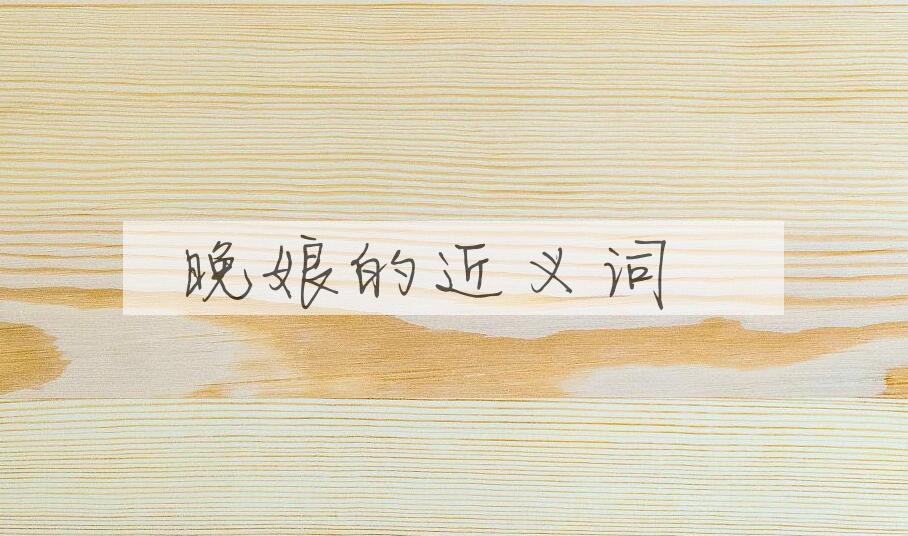 晚娘的近义词